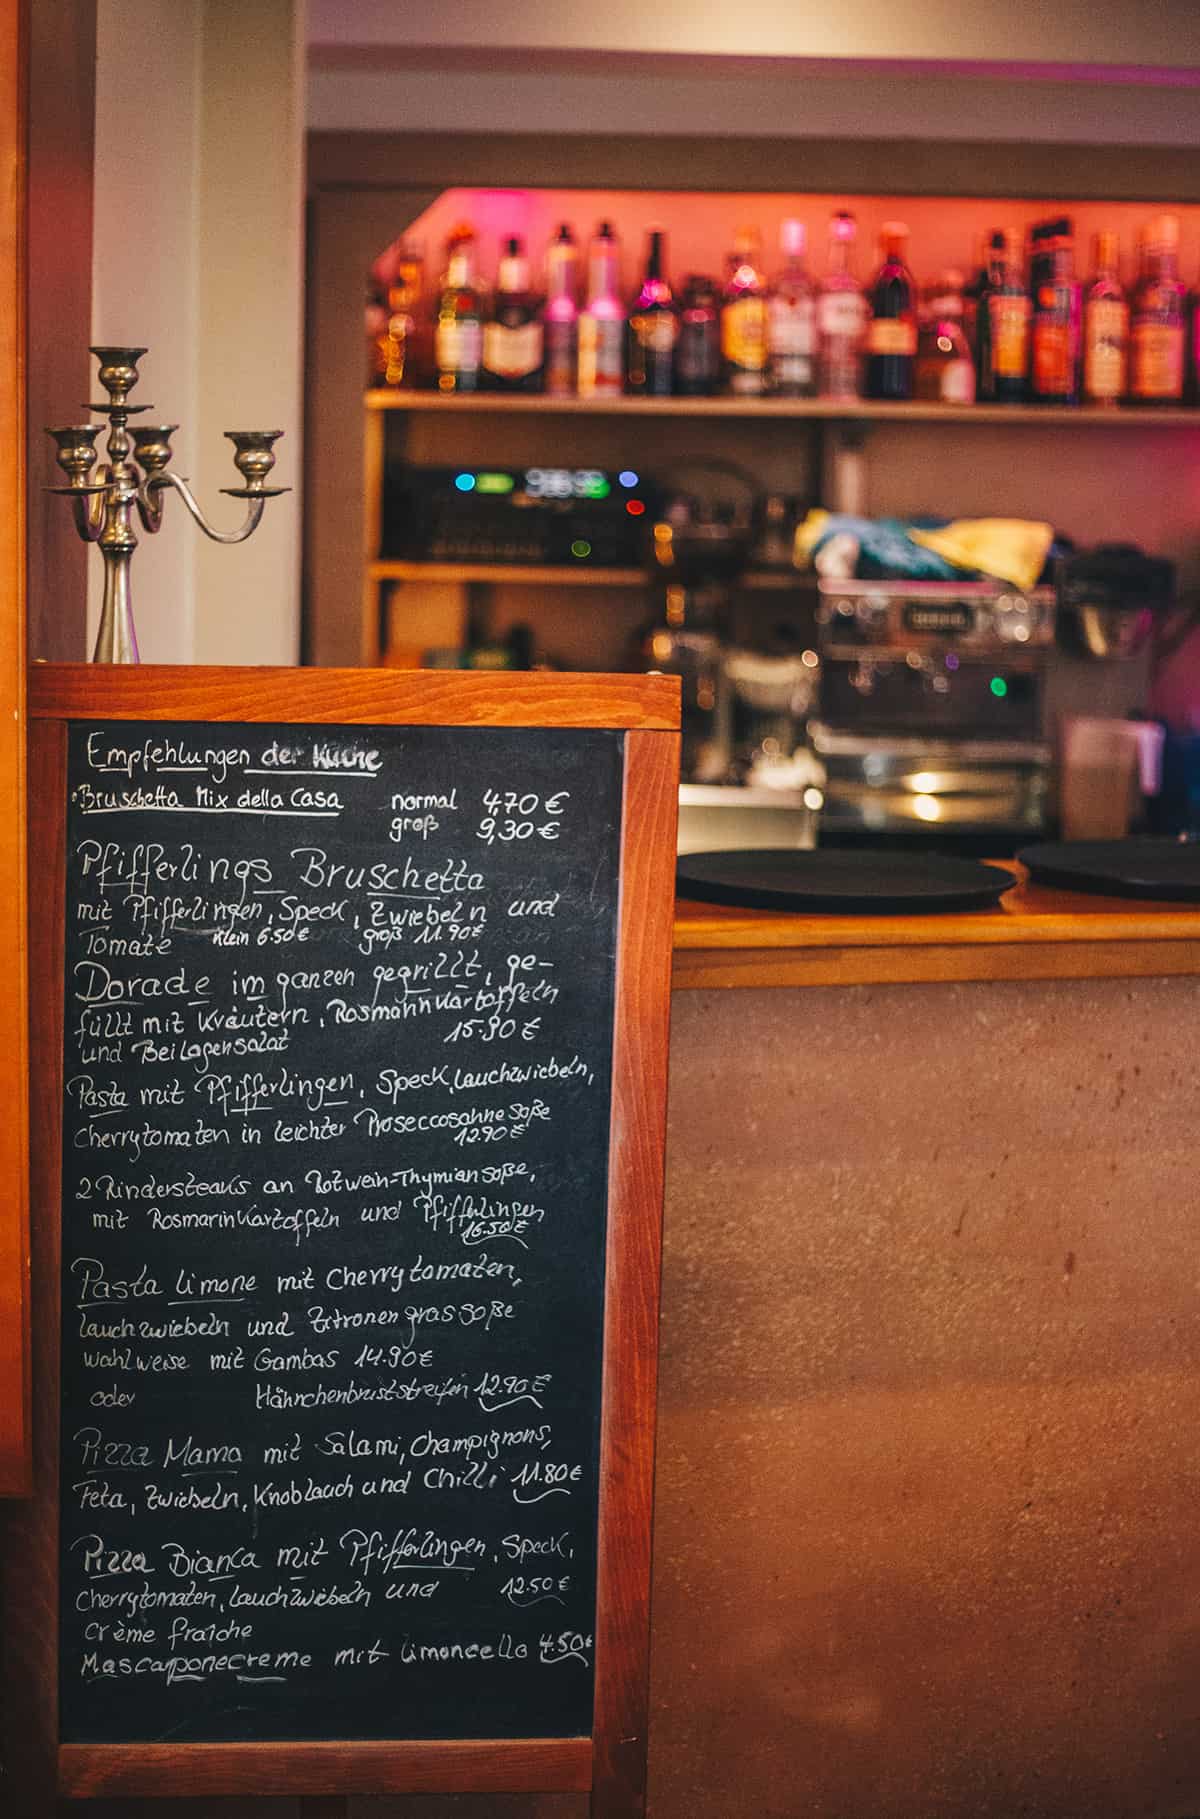 Empfehlungen der Küche
• Bruschetta Mix della Casa normal 4,70 €
groß 9,30 €
Pfifferlings Bruschetta
mit Pfifferlingen, Speck, Zwiebeln und
Tomate klein 6.50 € groß 11.90 €
Dorade im ganzen gegrillt, ge-
füllt mit Kräutern, Rosmarinkartoffeln
und Beilagensalat 15.90 €
Pasta mit Pfifferlingen, Speck, Lauchzwiebeln,
Cherrytomaten in leichter Proseccosahne soße
12.90 €
2 Rindersteaks an Rotwein-Thymian soße,
mit Rosmarinkartoffeln und Pfifferlingen
16.50 €
Pasta Limone mit Cherrytomaten,
Lauchzwiebeln und Zitronengrassoße
wahlweise mit Gambas 14.90 €
oder Hähnchenbruststreifen 12.90 €
Pizza Mama mit Salami, Champignons,
Feta, Zwiebeln, Knoblauch und Chilli 11.80 €
Pizza Bianca mit Pfifferlingen, Speck,
Cherrytomaten, Lauchzwiebeln und 12.50 €
Crème fraîche
Mascarponecreme mit Limoncello 4.50 €